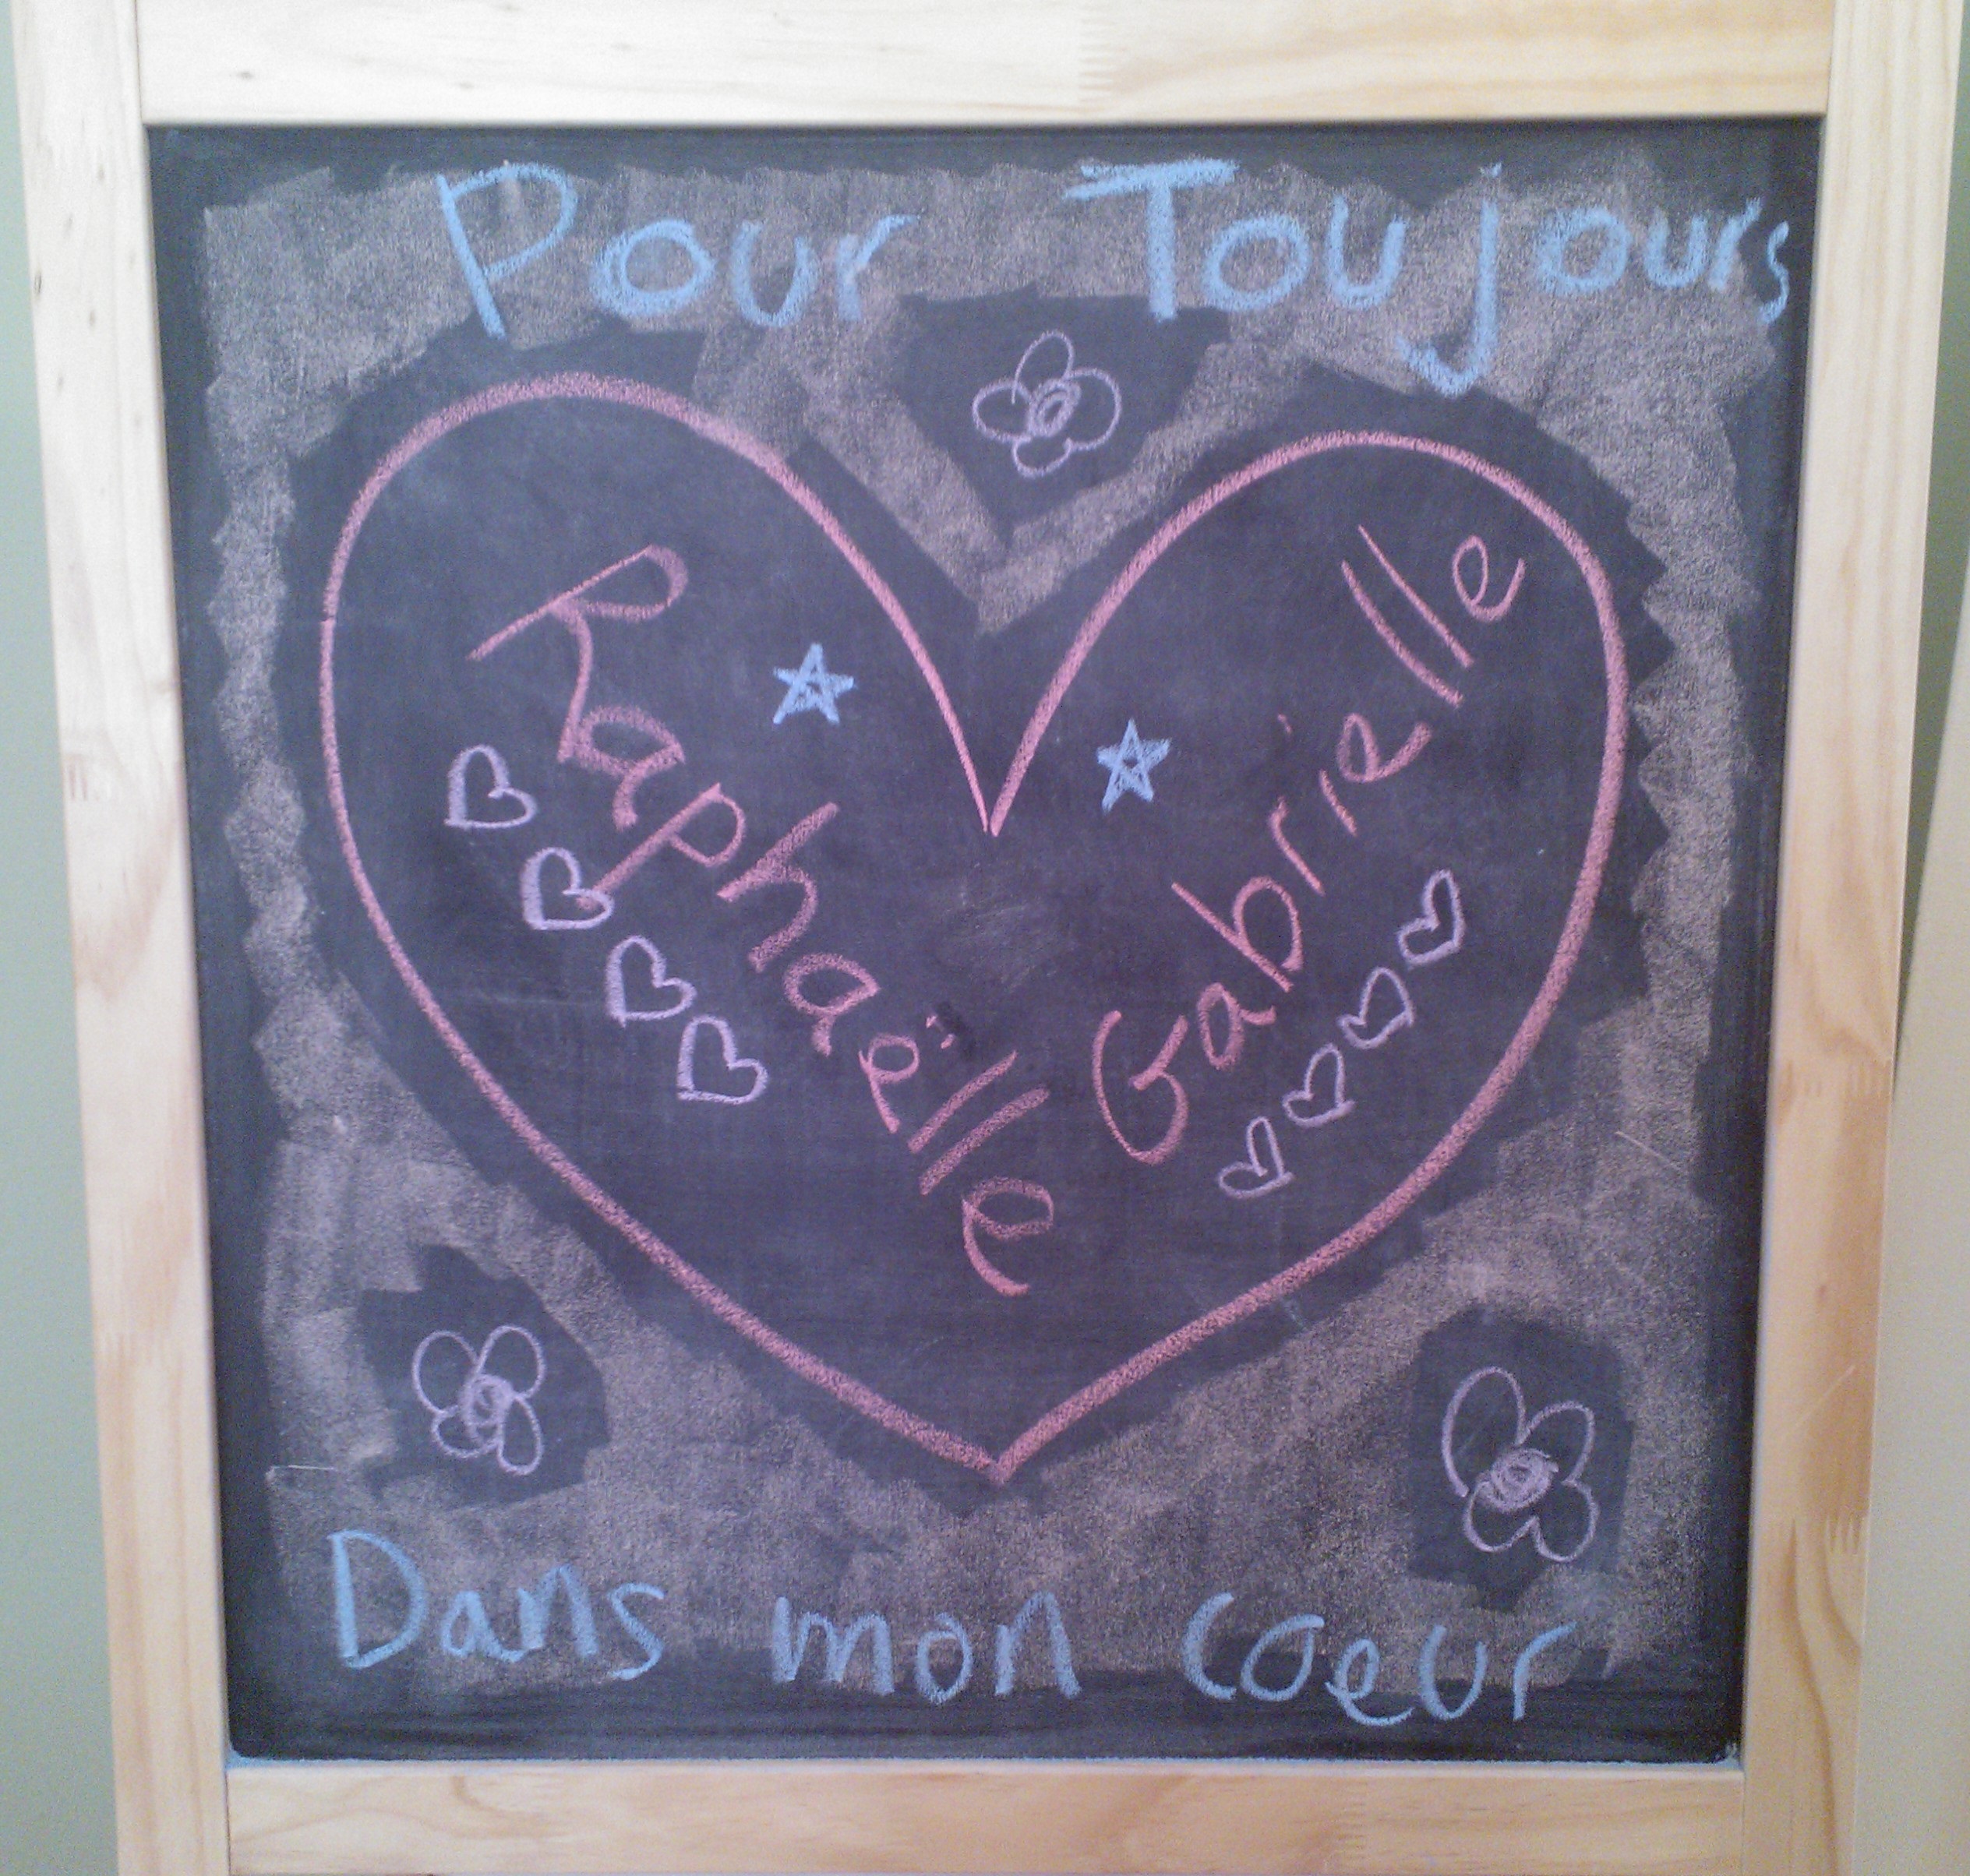 Pour Toujours
Raphaëlle
Gabrielle
Dans mon coeur